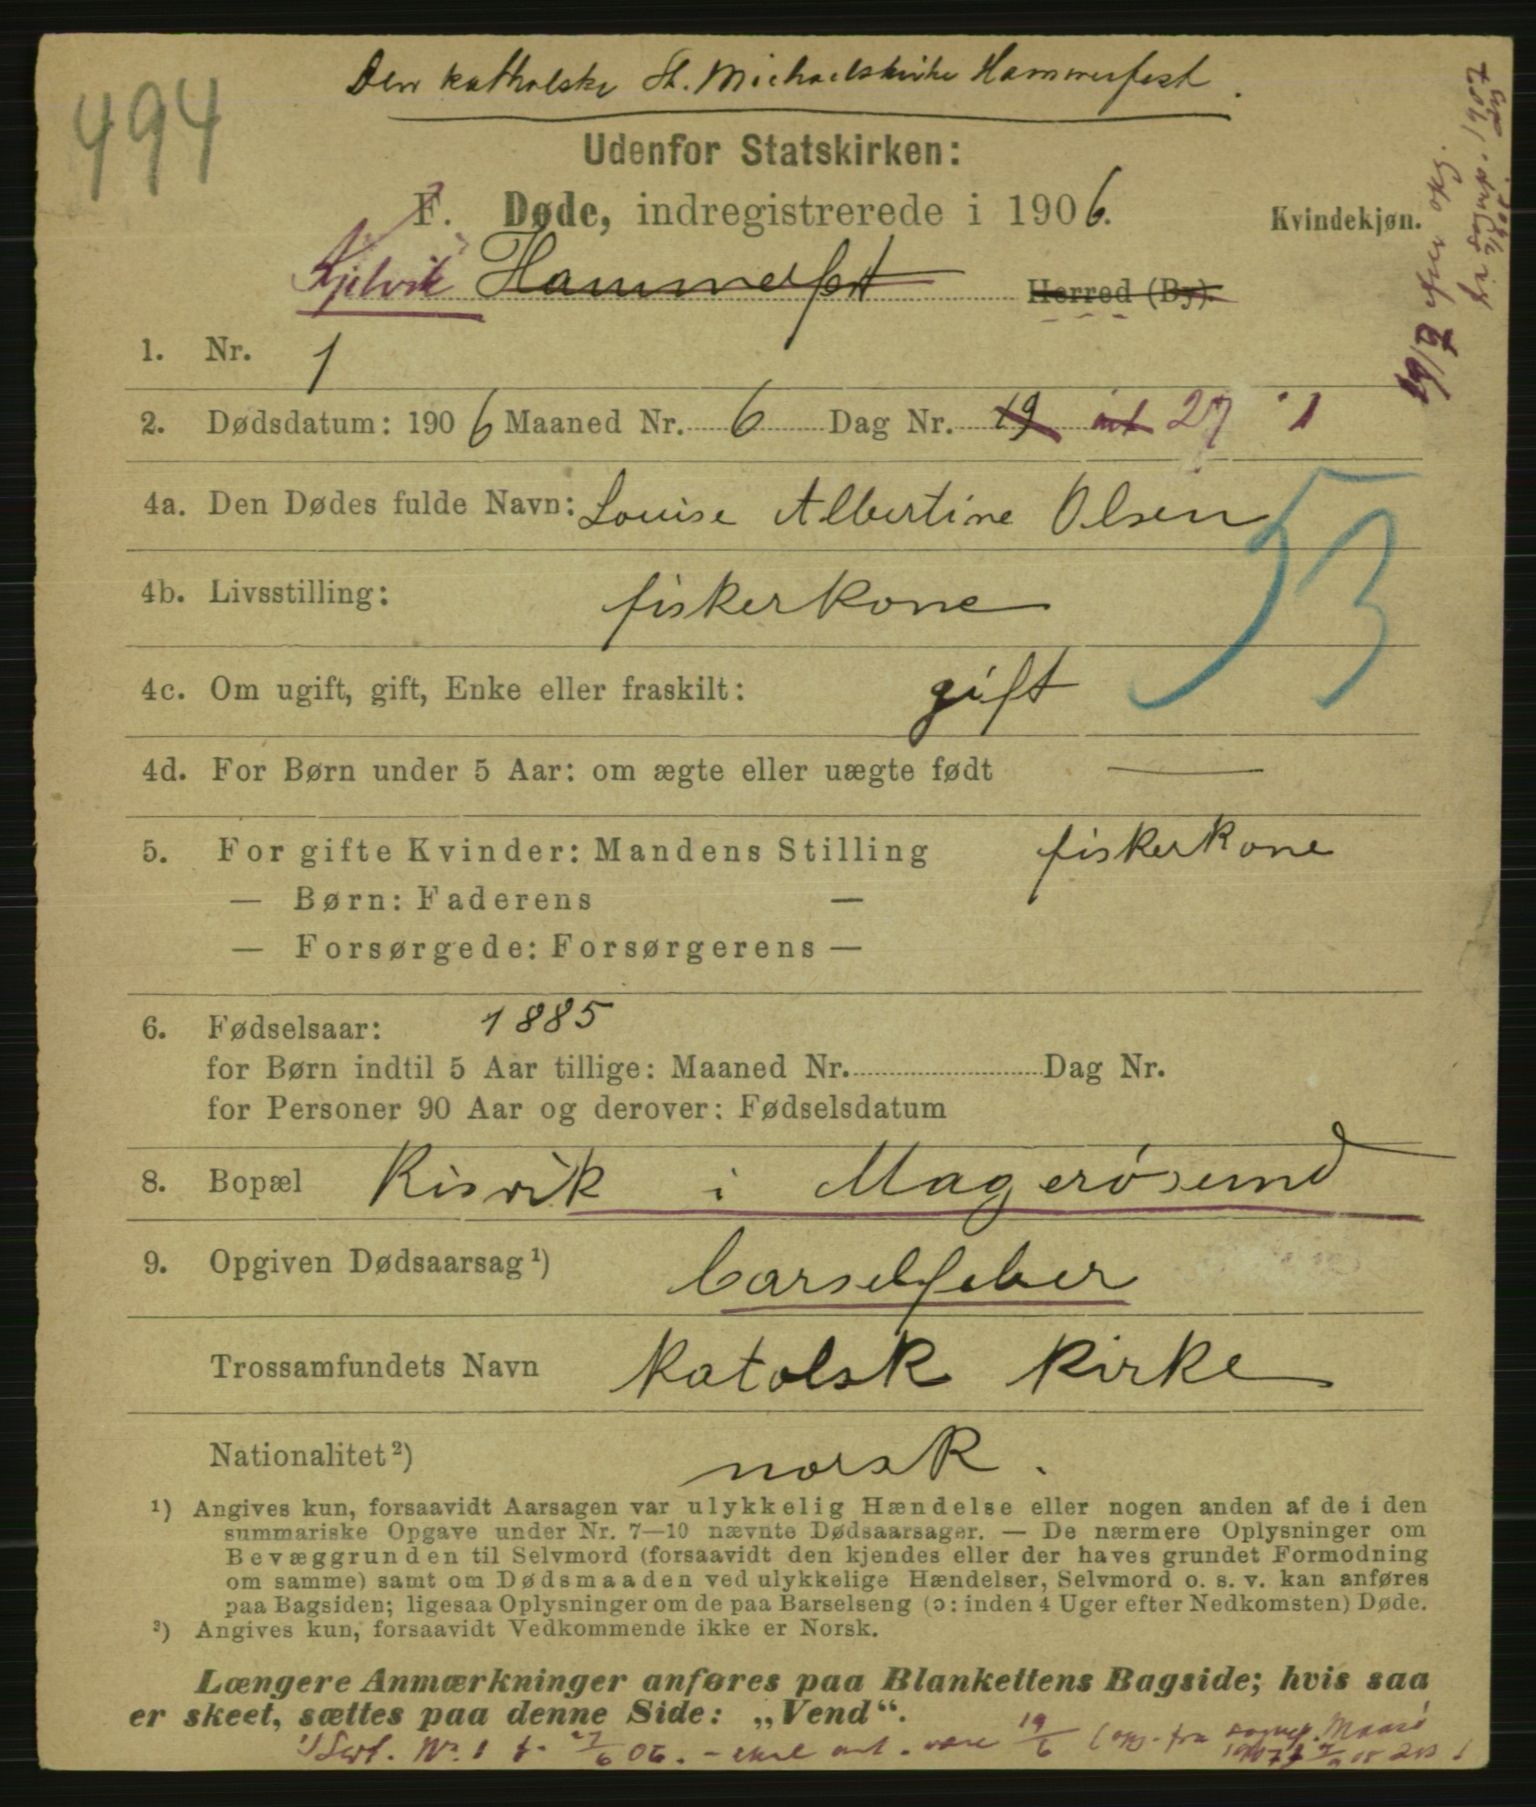 Den katholske St. Michaelskirke Hammerfest.
494
Udenfor Statskirken:
F. Døde, indregistrerede i 1906.
Kvindekjøn.
Kjelvik Hammerfest Herred (By).
1. Nr. 1
2. Dødsdatum: 1906 Maaned Nr. 6 Dag Nr. 19 27
4a. Den Dødes fulde Navn: Louise Albertine Olsen
53
4b. Livsstilling: fiskerkone
4c. Om ugift, gift, Enke eller fraskilt: gift
4d. For Børn under 5 Aar: om ægte eller uægte født —
5. For gifte Kvinder: Mandens Stilling fiskerkone
— Børn: Faderens —
— Forsørgede: Forsørgerens —
6. Fødselsaar: 1885
for Børn indtil 5 Aar tillige: Maaned Nr. Dag Nr.
for Personer 90 Aar og derover: Fødselsdatum
8. Bopæl Risvik i Magerösund
9. Opgiven Dødsaarsag ¹) barselfeber
Trossamfundets Navn Katolsk Kirke
Nationalitet ²) norsk.
¹) Angives kun, forsaavidt Aarsagen var ulykkelig Hændelse eller nogen anden af de i den
summariske Opgave under Nr. 7—10 nævnte Dødsaarsager. — De nærmere Oplysninger om
Bevæggrunden til Selvmord (forsaavidt den kjendes eller der haves grundet Formodning
om samme) samt om Dødsmaaden ved ulykkelige Hændelser, Selvmord o. s. v. kan anføres
paa Bagsiden; ligesaa Oplysninger om de paa Barselseng (ɔ: inden 4 Uger efter Nedkomsten) Døde.
²) Angives kun, forsaavidt Vedkommende ikke er Norsk.
Længere Anmærkninger anføres paa Blankettens Bagside; hvis saa
er skeet, sættes paa denne Side: „Vend“.